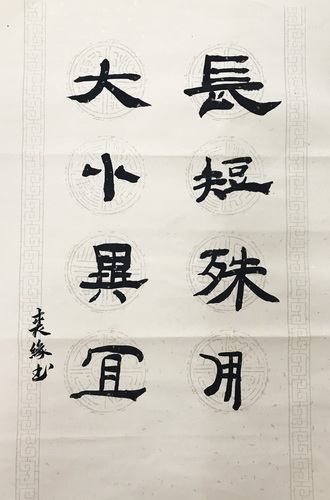 長短殊用
大小異宜
奕緣书